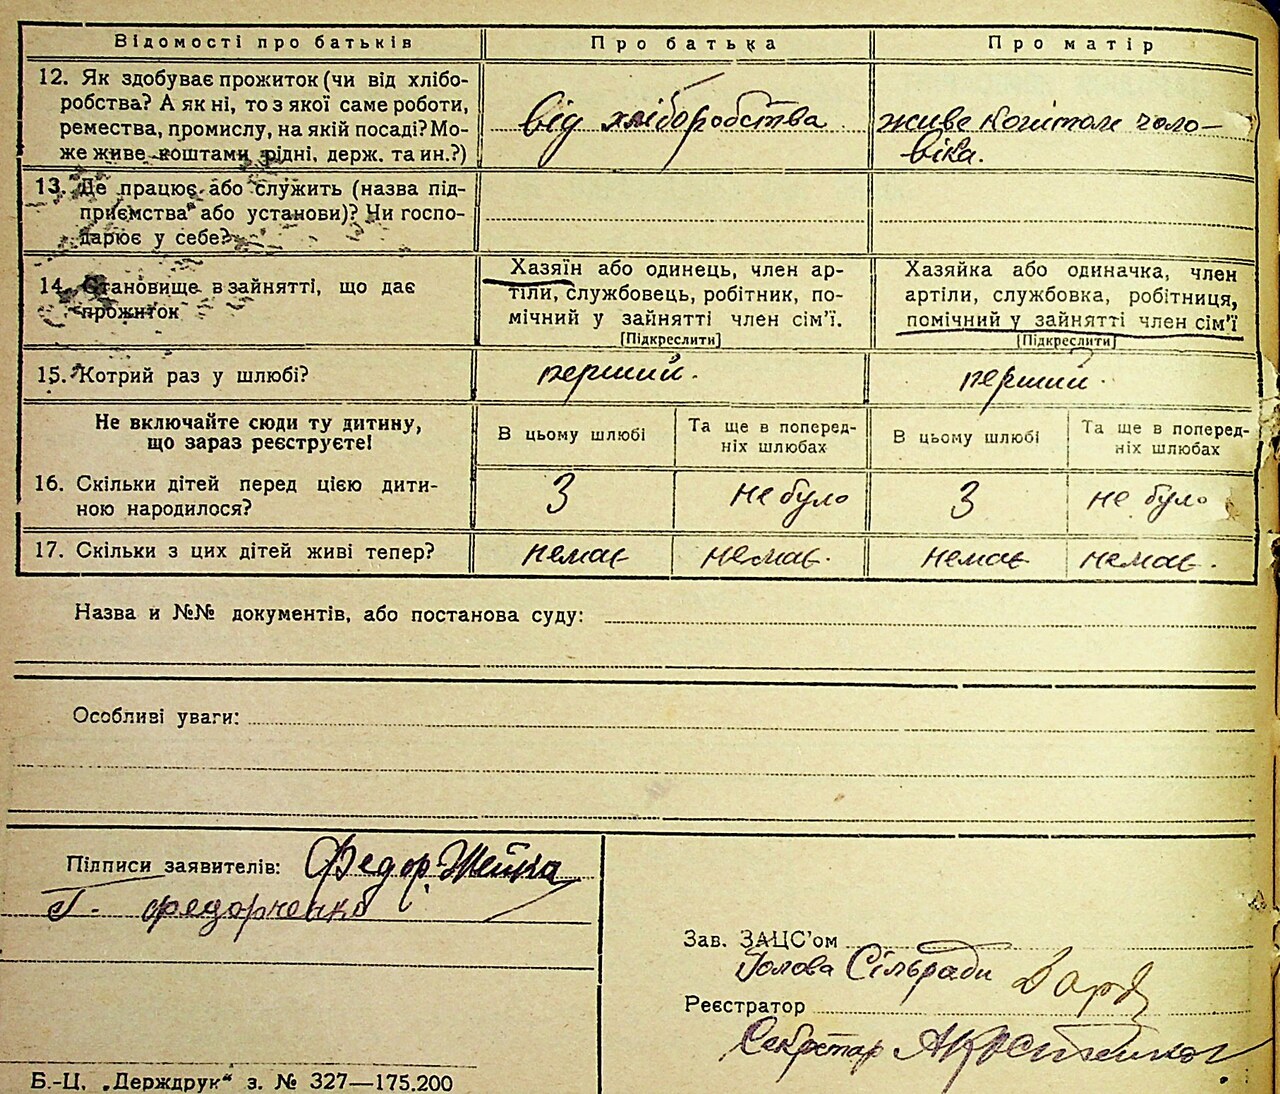 Відомості про батьків
Про батька
Про матір
12. Як здобуває прожиток (чи від хлібо-
робства? А як ні, то з якої саме роботи,
ремества, промислу, на якій посаді? Мо-
же живе коштами рідні, держ. та ин.?)
від хліборобства
живе коштом чоло-
віка.
13. Де працює або служить (назва під-
приємства або установи)? Чи госпо-
дарює у себе?
14. Становище в зайнятті, що дає
прожиток
Хазяїн або одинець, член ар-
тіли, службовець, робітник, по-
мічний у зайнятті член сім'ї.
[Підкреслити]
Хазяйка або одиначка, член
артіли, службовка, робітниця,
помічний у зайнятті член сім'ї
[Підкреслити]
15. Котрий раз у шлюбі?
перший.
перший.
Не включайте сюди ту дитину,
що зараз реєструєте!
В цьому шлюбі
Та ще в поперед-
ніх шлюбах
В цьому шлюбі
Та ще в поперед-
ніх шлюбах
16. Скільки дітей перед цією дити-
ною народилося?
3
не було
3
не було
17. Скільки з цих дітей живі тепер?
немає
немає.
немає
немає.
Назва и №№ документів, або постанова суду:
Особливі уваги:
Підписи заявителів: Федор
Федорченко
Зав. ЗАЦС'ом
Голова Сільради
Реєстратор
Секретар
Б.-Ц. „Держдрук“ з. № 327—175.200